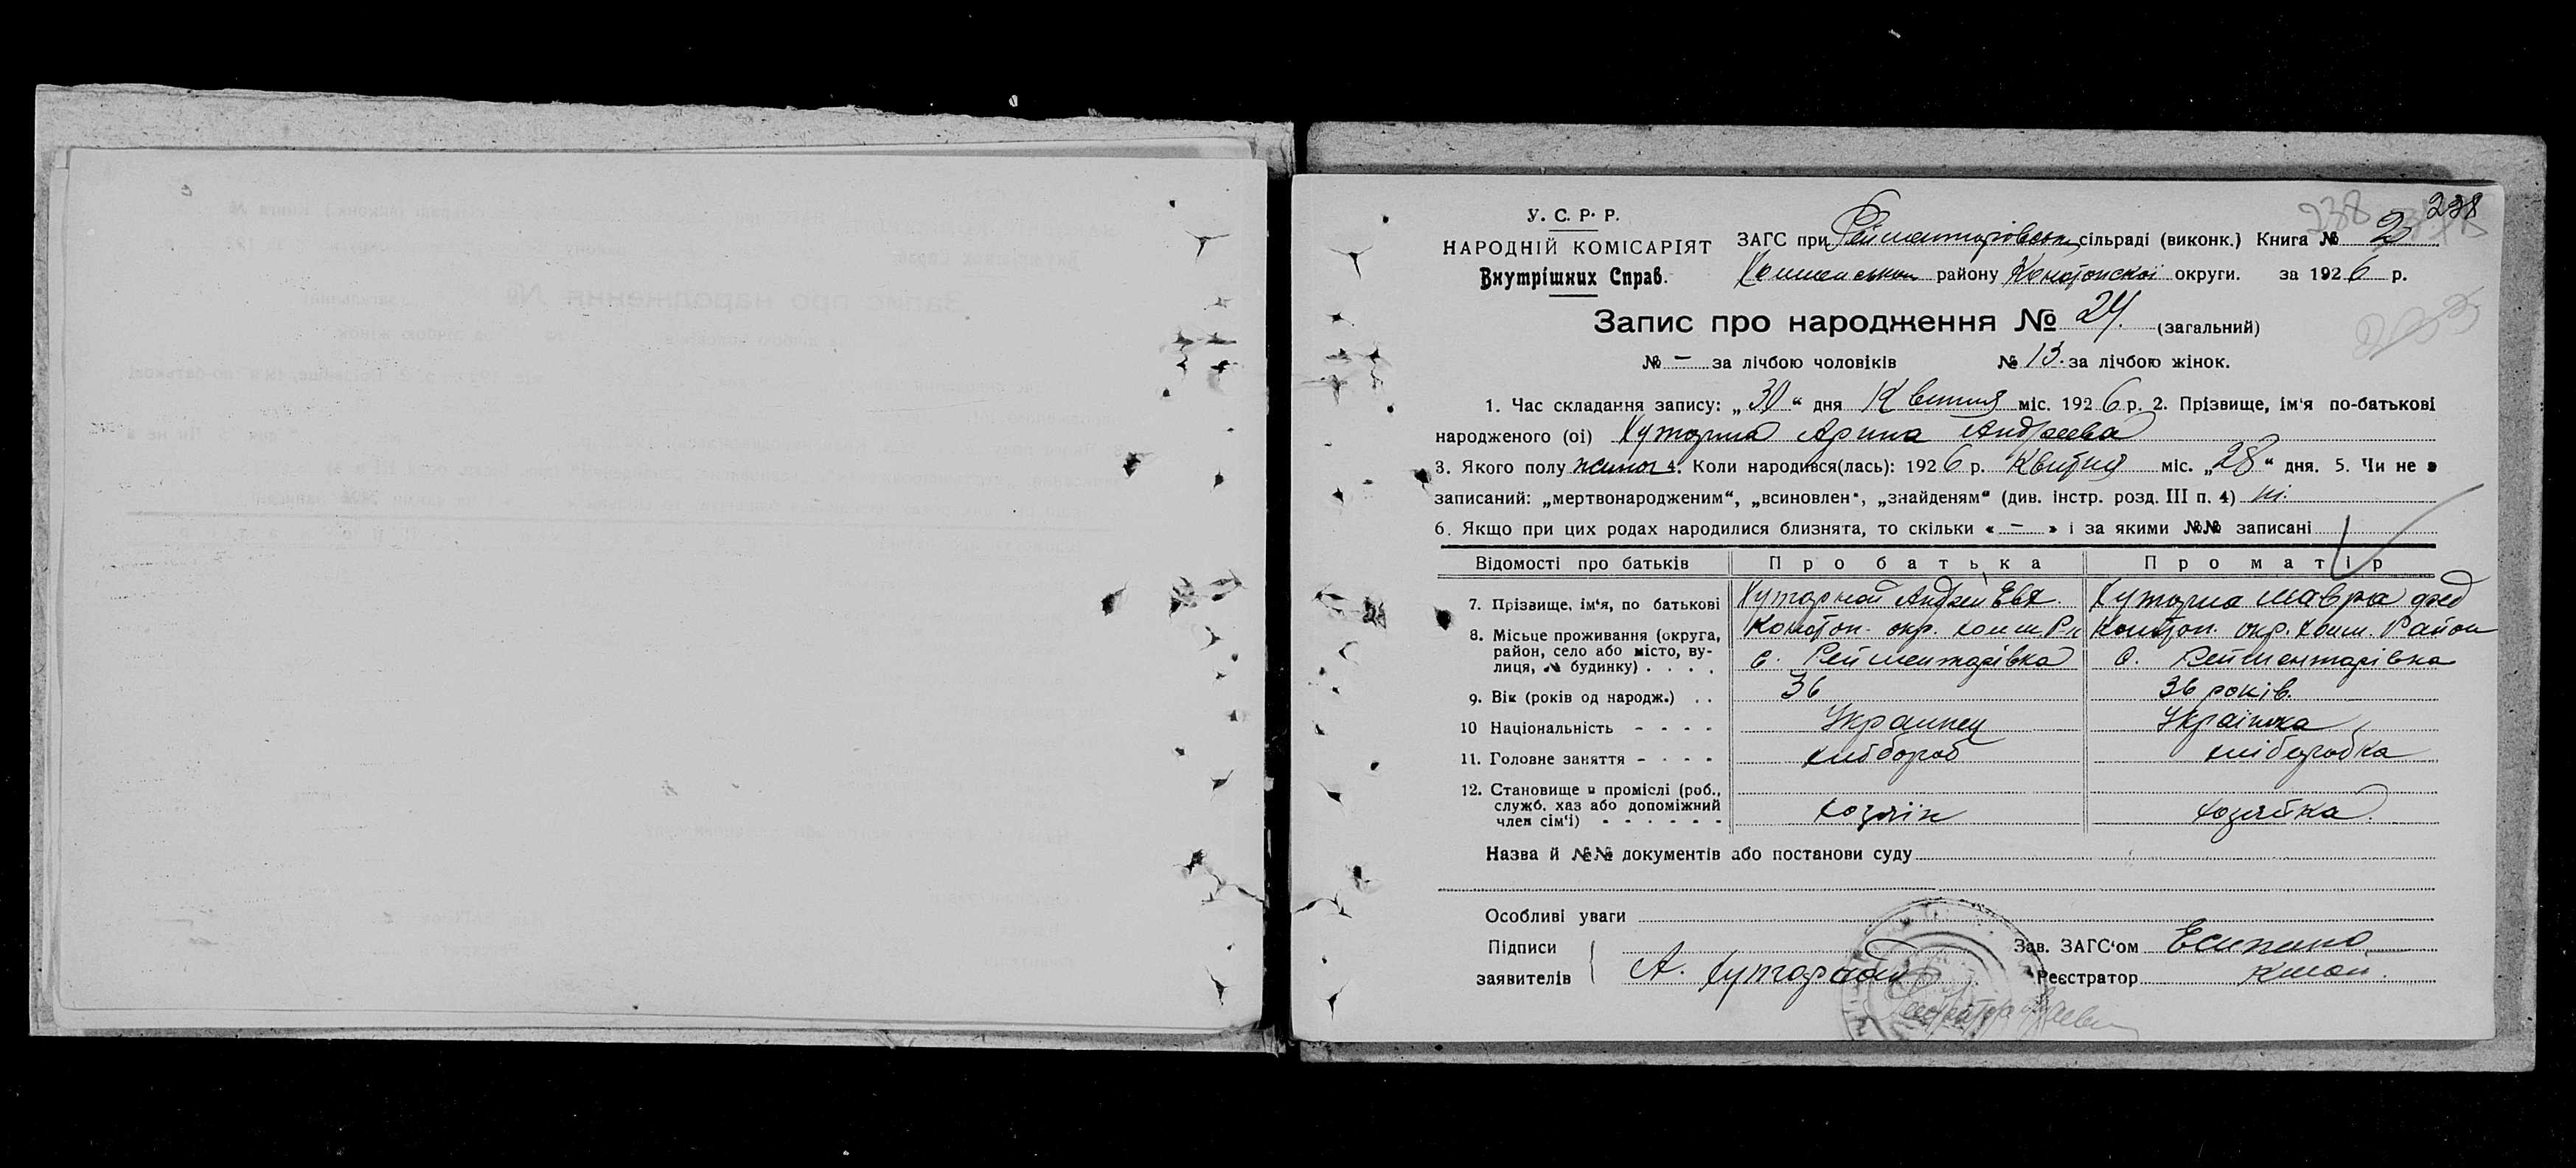 238
У. С. Р. Р.
НАРОДНІЙ КОМІСАРІЯТ
Внутрішних Справ.
ЗАГС при Рейментарівськ сільраді (виконк.) Книга № 2
району Конотопскої округи. за 1926 р.
Запис про народження № 24. (загальний)
№ – за лічбою чоловіків № 13. за лічбою жінок.
1. Час складання запису: „30“ дня Квітня міс. 1926 р. 2. Прізвище, ім'я по-батькові
народженого (ої) Хуторна Арина Андреева
3. Якого полу жіноч 4. Коли народився(лась): 1926 р. Квітня міс. „28“ дня. 5. Чи не є
записаний: „мертвонародженим“, „всиновлен“, „знайденям“ (див. інстр. розд. III п. 4) ні.
6. Якщо при цих родах народилися близнята, то скільки « – » і за якими №№ записані
Відомості про батьків Про батька Про матір
7. Прізвище, ім'я, по батькові Хуторной Андрей Евх. Хуторна Мавра фед
8. Місьце проживання (округа, район, село або місто, вулиця, № будинку) . . . .
Конотоп. окр. Холм. Р-н Конотоп. окр. Холм. Район
с. Рейментарівка с. Рейментарівка
9. Вік (років од народж.) . . 36 36 років.
10 Національність - - - - Украинец Українка
11. Головне заняття - - - - хлібороб хліборобка
12. Становище в промислі (роб., служб. хаз або допоміжний член сім'ї) - - - - - - хозяїн хозяйка.
Назва й №№ документів або постанови суду
Особливі уваги
Підписи
заявителів А. Хуторной
Зав. ЗАГС'ом
Реєстратор